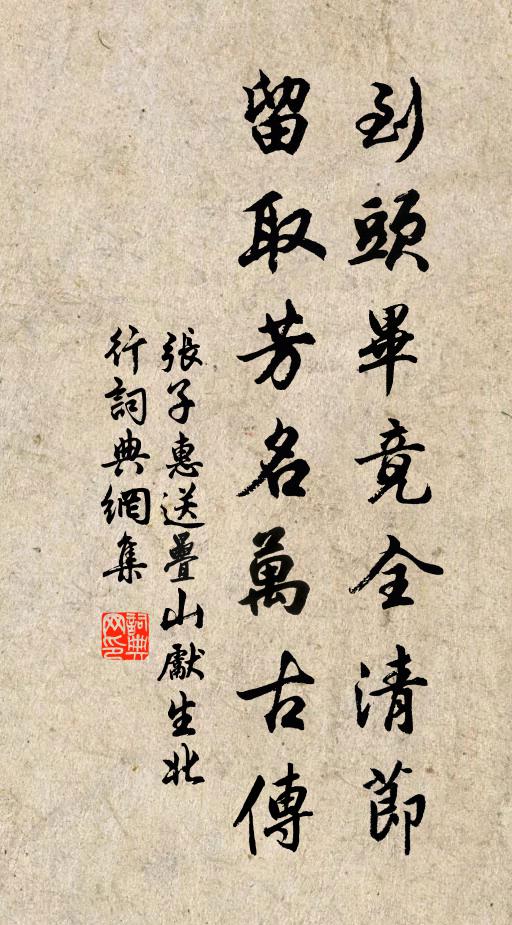 到頭畢竟全清節
留取芳名萬古傳
張子惠送疊山獻生北
行詞典網集
詞典网印